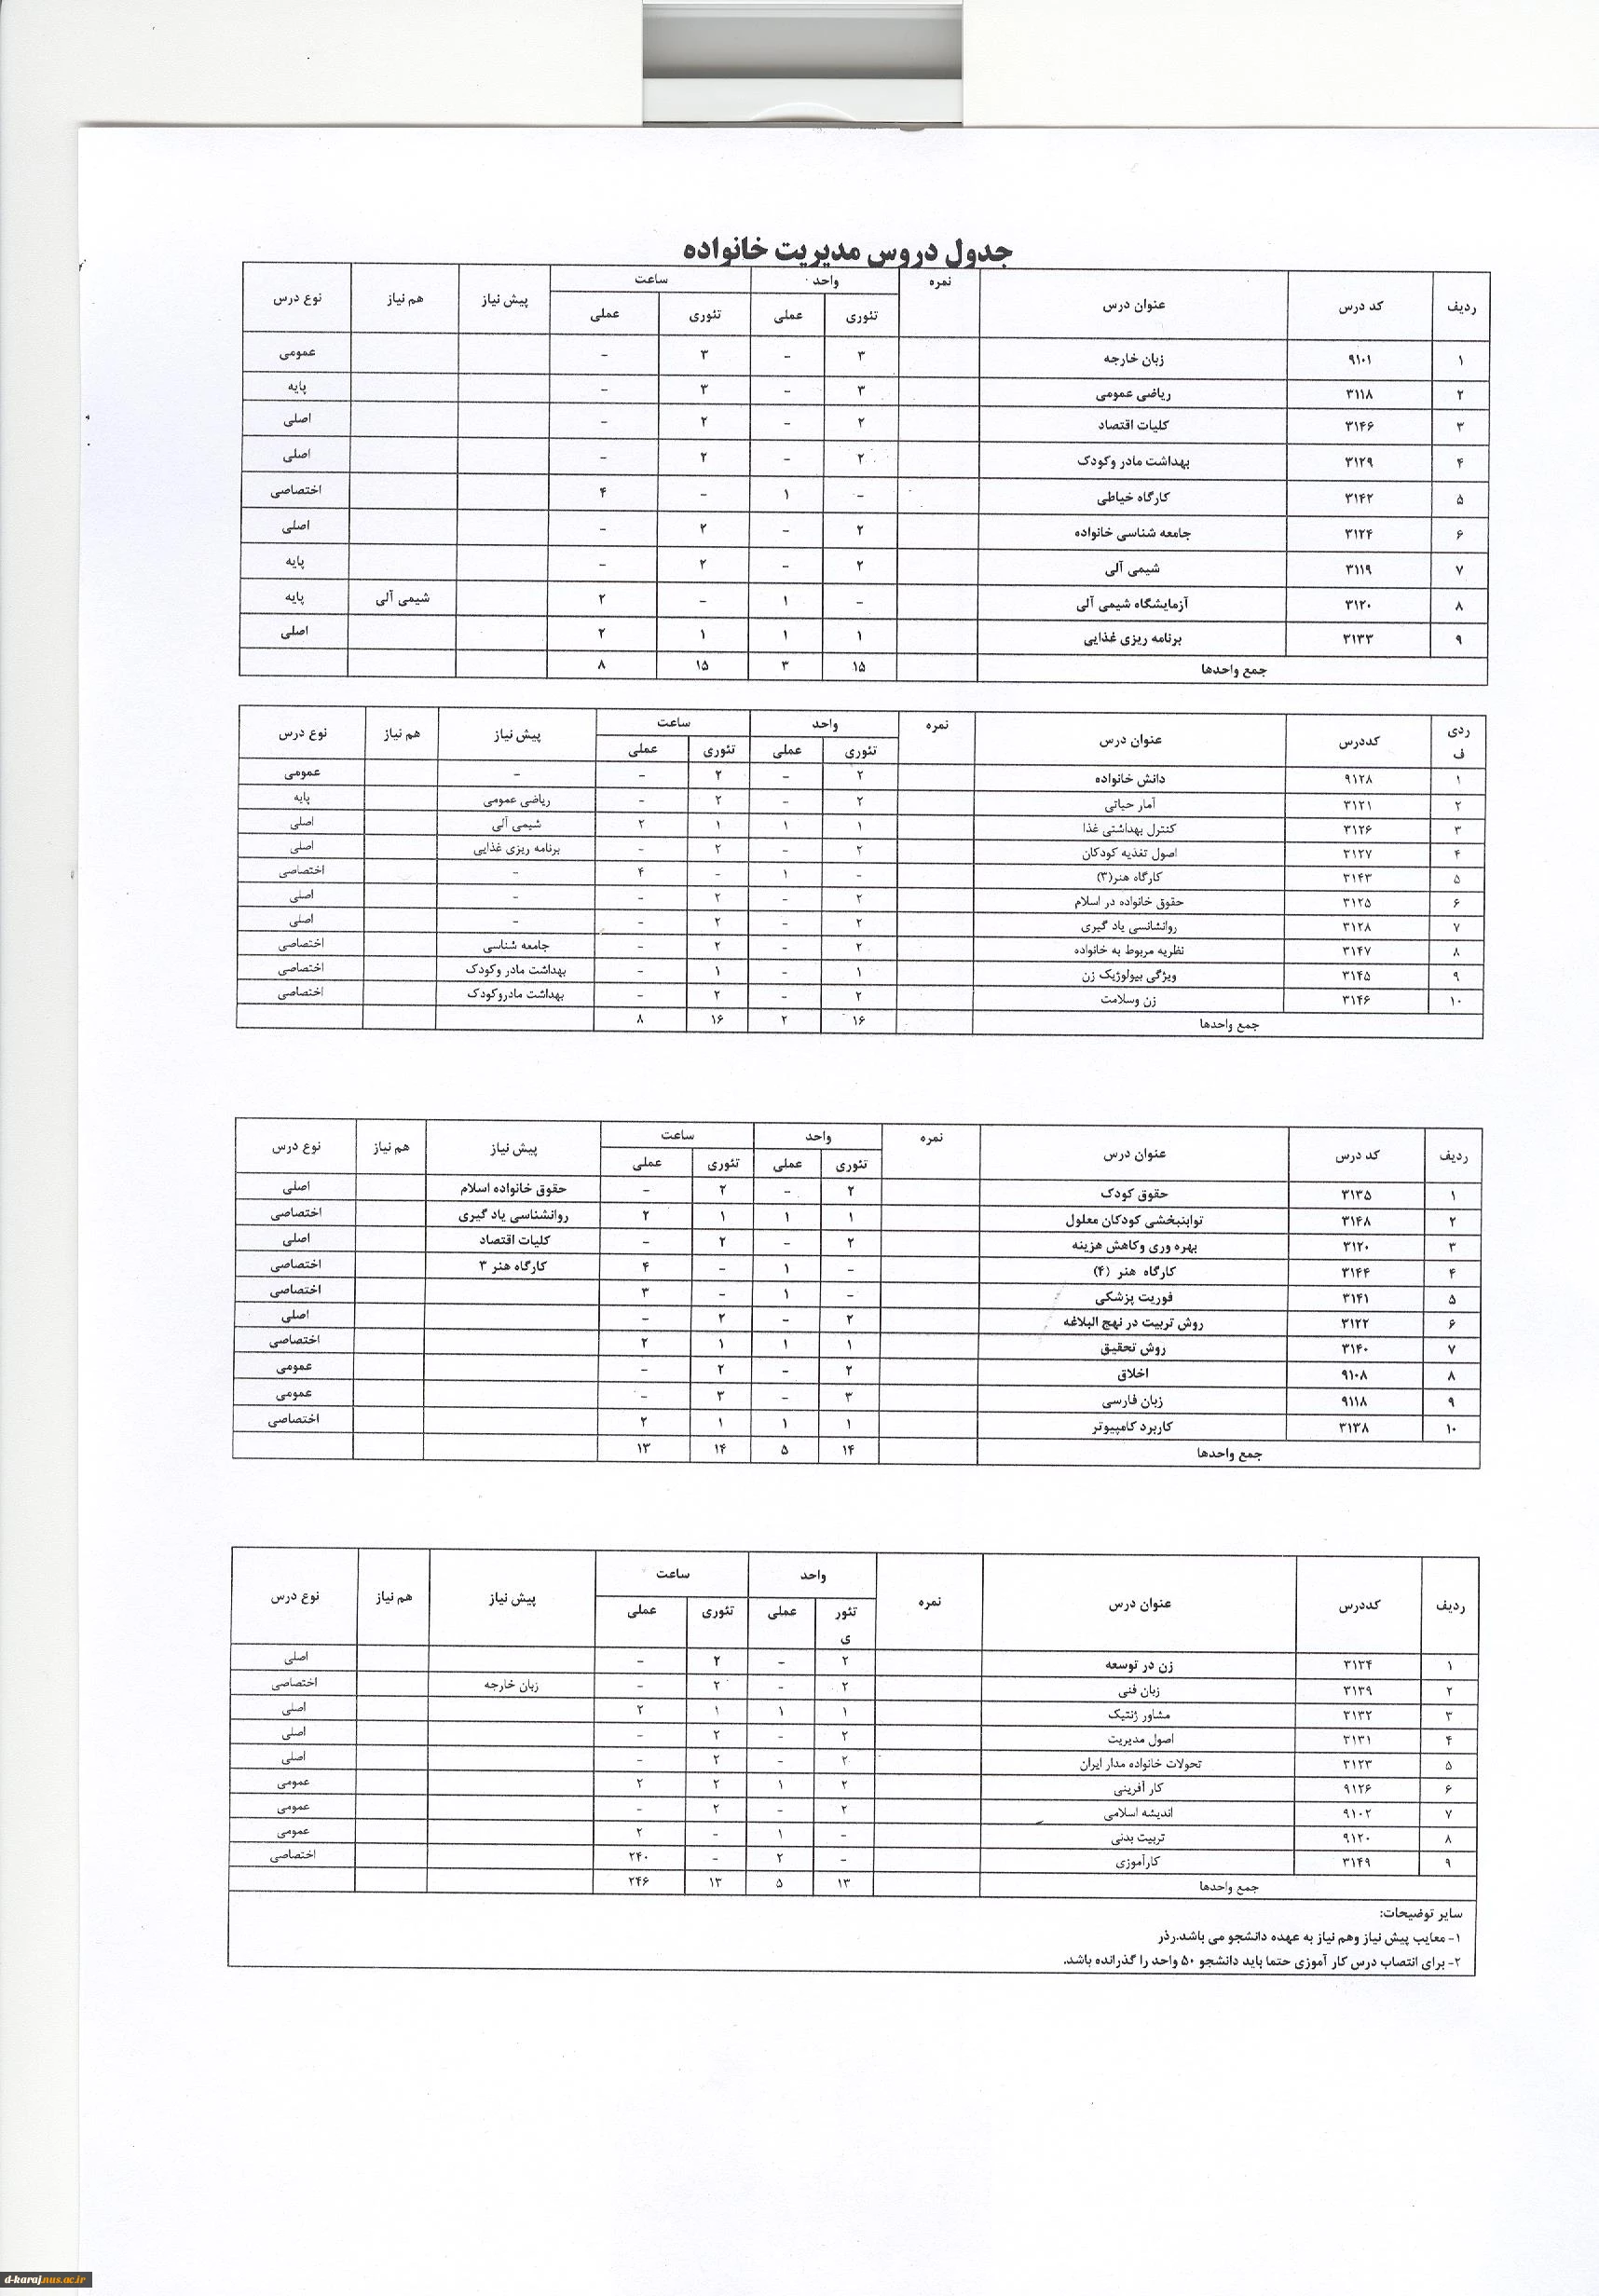 جدول دروس مدیریت خانواده
ردیف کد درس عنوان درس نمره واحد ساعت پیش نیاز هم نیاز نوع درس
تئوری عملی تئوری عملی
۱ ۹۱۰۱ زبان خارجه ۳ - ۳ - عمومی
۲ ۳۱۱۸ ریاضی عمومی ۳ - ۳ - پایه
۳ ۳۱۴۶ کلیات اقتصاد ۲ - ۲ - اصلی
۴ ۳۱۲۹ بهداشت مادر وکودک ۲ - ۲ - اصلی
۵ ۳۱۴۲ کارگاه خیاطی - ۱ - ۴ اختصاصی
۶ ۳۱۲۴ جامعه شناسی خانواده ۲ - ۲ - اصلی
۷ ۳۱۱۹ شیمی آلی ۲ - ۲ - پایه
۸ ۳۱۲۰ آزمایشگاه شیمی آلی - ۱ - ۲ شیمی آلی پایه
۹ ۳۱۳۳ برنامه ریزی غذایی ۱ ۱ ۱ ۲ اصلی
جمع واحدها ۱۵ ۳ ۱۵ ۸
ردی ف کددرس عنوان درس نمره واحد ساعت پیش نیاز هم نیاز نوع درس
تئوری عملی تئوری عملی
۱ ۹۱۲۸ دانش خانواده ۲ - ۲ - - عمومی
۲ ۳۱۲۱ آمار حیاتی ۲ - ۲ - ریاضی عمومی پایه
۳ ۳۱۲۶ کنترل بهداشتی غذا ۱ ۱ ۱ ۲ شیمی آلی اصلی
۴ ۳۱۲۷ اصول تغذیه کودکان ۲ - ۲ - برنامه ریزی غذایی اصلی
۵ ۳۱۴۳ کارگاه هنر(۳) - ۱ - ۴ - اختصاصی
۶ ۳۱۲۵ حقوق خانواده در اسلام ۲ - ۲ - - اصلی
۷ ۳۱۲۸ روانشانسی یاد گیری ۲ - ۲ - - اصلی
۸ ۳۱۴۷ نظریه مربوط به خانواده ۲ - ۲ - جامعه شناسی اختصاصی
۹ ۳۱۴۵ ویژگی بیولوژیک زن ۱ - ۱ - بهداشت مادر وکودک اختصاصی
۱۰ ۳۱۴۶ زن وسلامت ۲ - ۲ - بهداشت مادروکودک اختصاصی
جمع واحدها ۱۶ ۲ ۱۶ ۸
ردیف کد درس عنوان درس نمره واحد ساعت پیش نیاز هم نیاز نوع درس
تئوری عملی تئوری عملی
۱ ۳۱۳۵ حقوق کودک ۲ - ۲ - حقوق خانواده اسلام اصلی
۲ ۳۱۴۸ توابنبخشی کودکان معلول ۱ ۱ ۱ ۲ روانشناسی یاد گیری اختصاصی
۳ ۳۱۲۰ بهره وری وکاهش هزینه ۲ - ۲ - کلیات اقتصاد اصلی
۴ ۳۱۴۴ کارگاه هنر (۴) - ۱ - ۴ کارگاه هنر ۳ اختصاصی
۵ ۳۱۴۱ فوریت پزشکی - ۱ - ۳ اختصاصی
۶ ۳۱۲۲ روش تربیت در نهج البلاغه ۲ - ۲ - اصلی
۷ ۳۱۴۰ روش تحقیق ۱ ۱ ۱ ۲ اختصاصی
۸ ۹۱۰۸ اخلاق ۲ - ۲ - عمومی
۹ ۹۱۱۸ زبان فارسی ۳ - ۳ - عمومی
۱۰ ۳۱۳۸ کاربرد کامپیوتر ۱ ۱ ۱ ۲ اختصاصی
جمع واحدها ۱۴ ۵ ۱۴ ۱۳
ردیف کددرس عنوان درس نمره واحد ساعت پیش نیاز هم نیاز نوع درس
تئور ی عملی تئوری عملی
۱ ۳۱۳۴ زن در توسعه ۲ - ۲ - اصلی
۲ ۳۱۳۹ زبان فنی ۲ - ۲ - زبان خارجه اختصاصی
۳ ۳۱۳۲ مشاور ژنتیک ۱ ۱ ۱ ۲ اصلی
۴ ۳۱۳۱ اصول مدیریت ۲ - ۲ - اصلی
۵ ۳۱۲۳ تحولات خانواده مدار ایران ۲ - ۲ - اصلی
۶ ۹۱۲۶ کار آفرینی ۲ ۱ ۲ ۲ عمومی
۷ ۹۱۰۲ اندیشه اسلامی ۲ - ۲ - عمومی
۸ ۹۱۲۰ تربیت بدنی - ۱ - ۲ عمومی
۹ ۳۱۴۹ کارآموزی - ۲ - ۲۴۰ اختصاصی
جمع واحدها ۱۳ ۵ ۱۳ ۲۴۶
سایر توضیحات:
۱- معایب پیش نیاز وهم نیاز به عهده دانشجو می باشد.رذر
۲- برای انتصاب درس کار آموزی حتما باید دانشجو ۵۰ واحد را گذرانده باشد.
d-karaj.nus.ac.ir